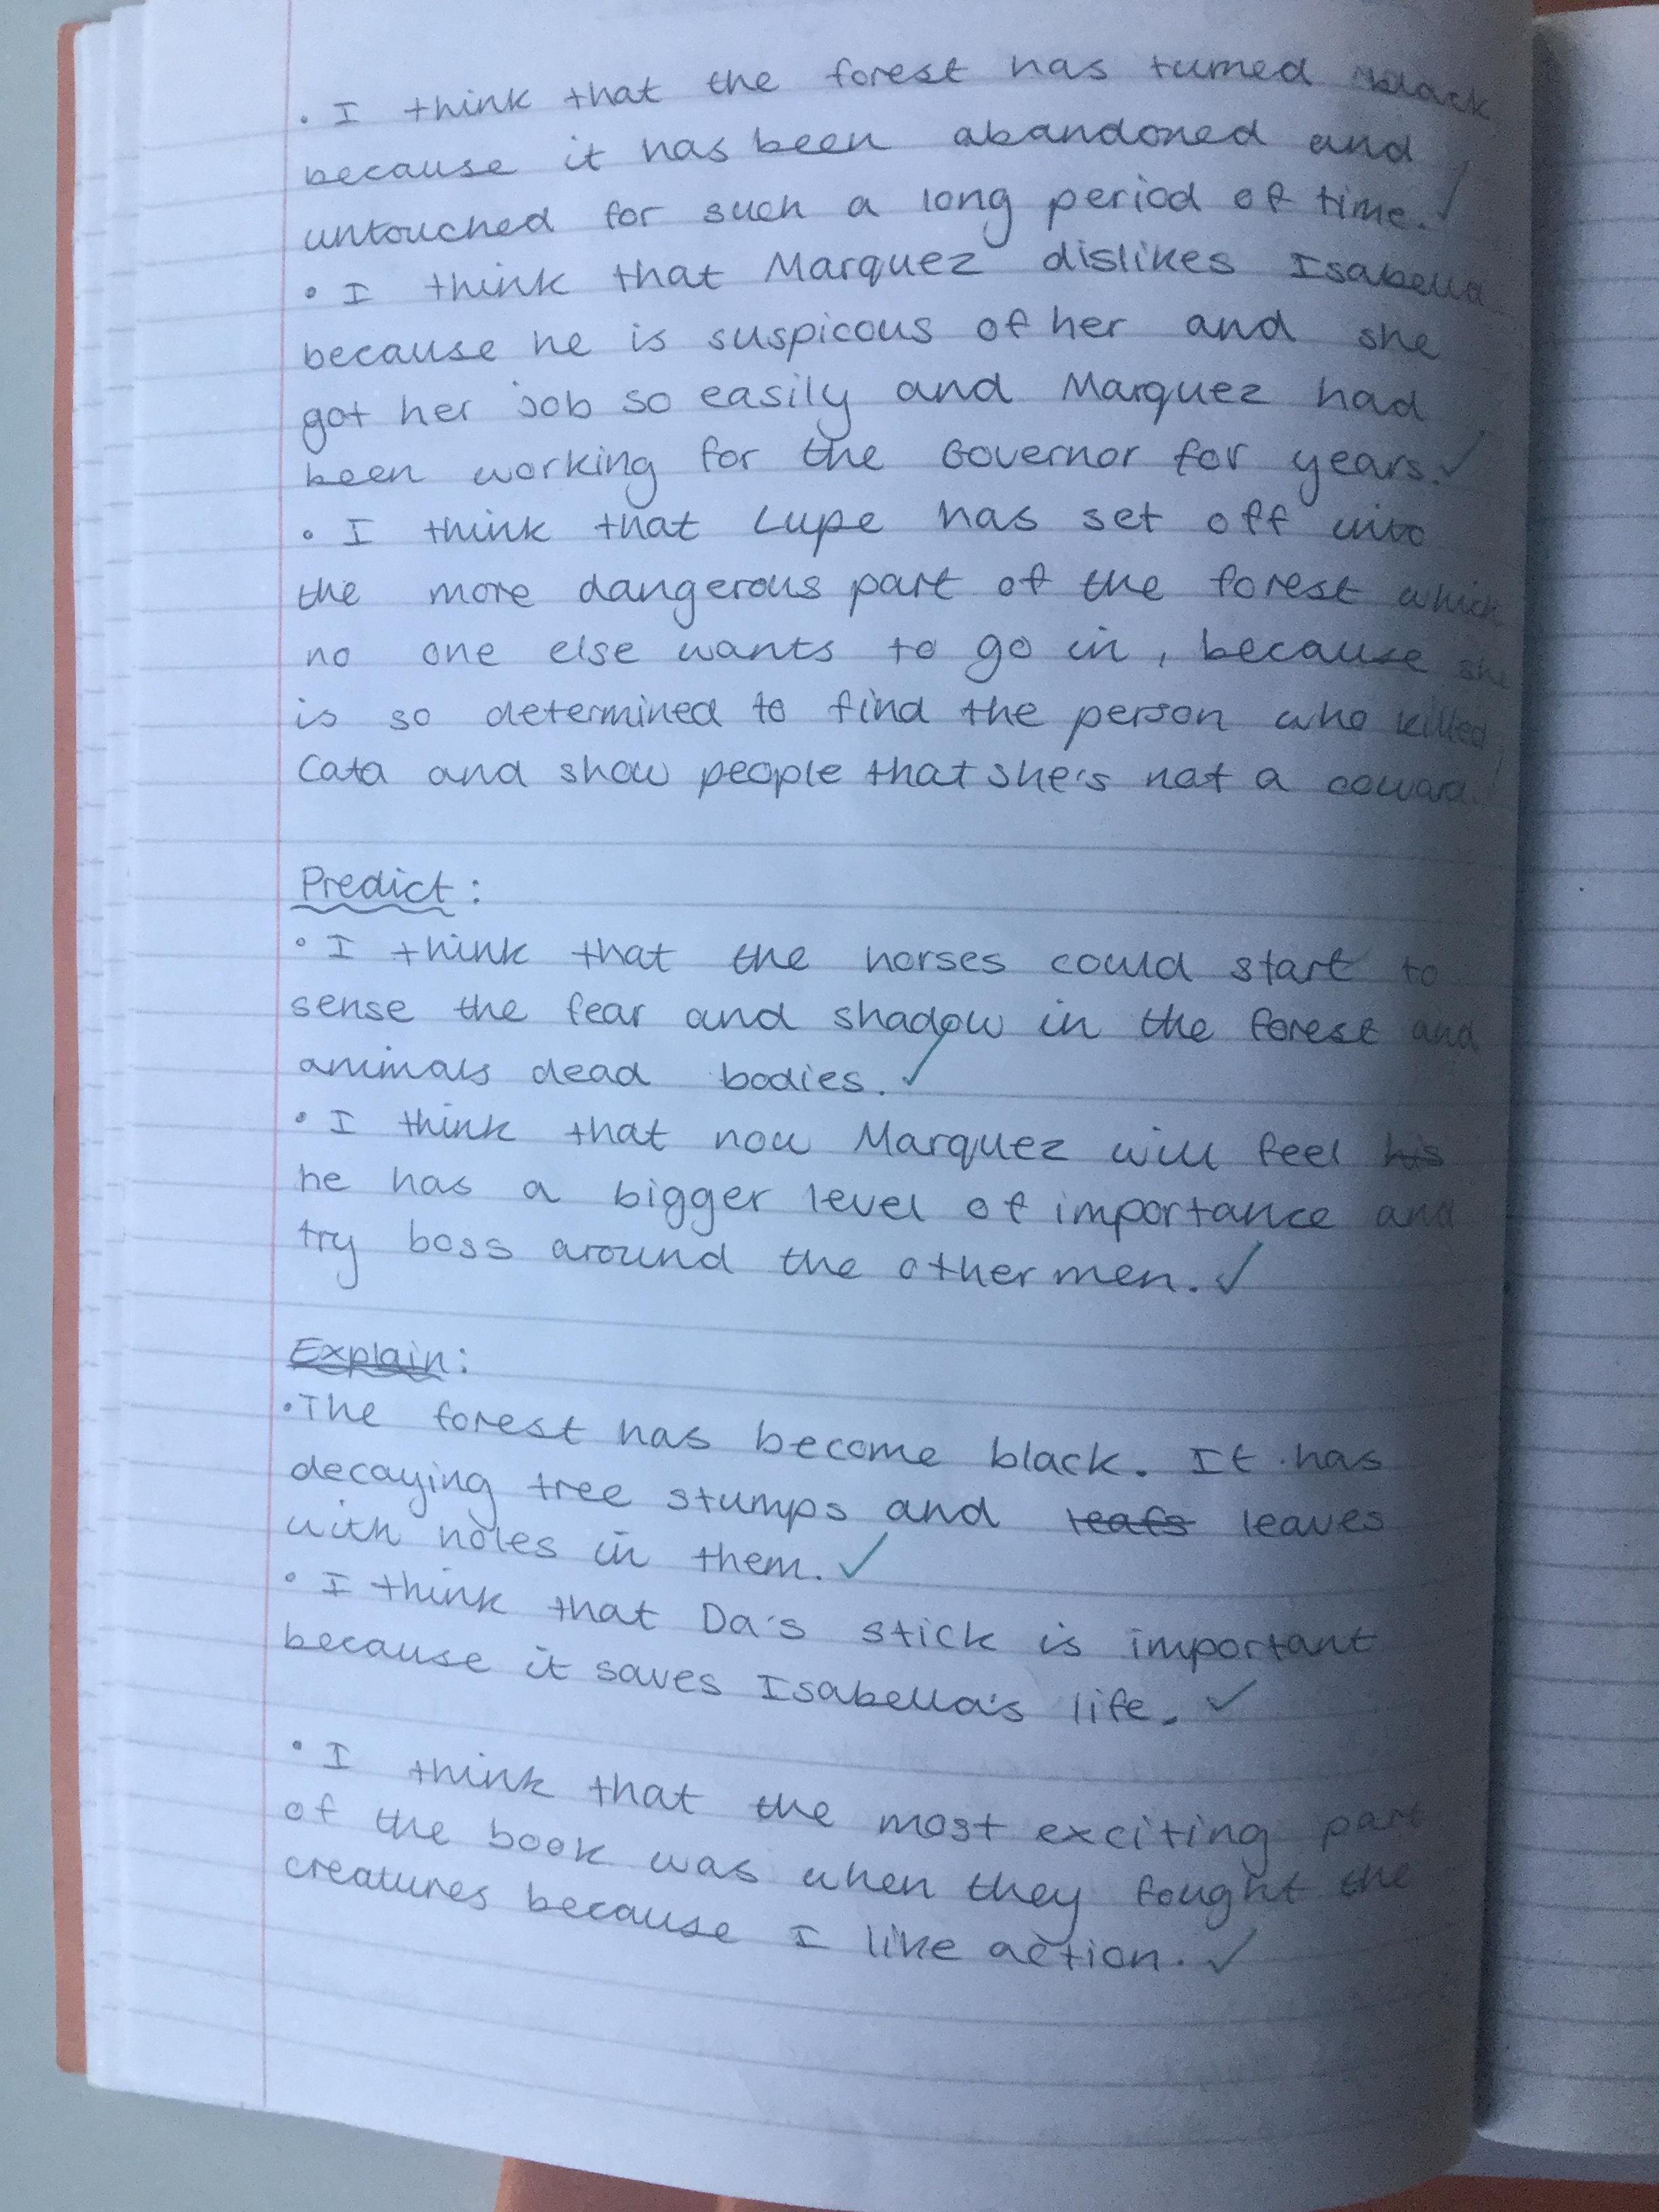 • I think that the forest has turned black
because it has been abandoned and
untouched for such a long period of time.
• I think that Marquez dislikes Isabella
because he is suspicous of her and she
got her job so easily and Marquez had
been working for the Governor for years.
• I think that Lupe has set off into
the more dangerous part of the forest which
no one else wants to go in, because she
is so determined to find the person who killed
Cata and show people that she's not a coward.
Predict:
• I think that the horses could start to
sense the fear and shadow in the forest and
animals dead bodies.
• I think that now Marquez will feel his
he has a bigger level of importance and
try boss around the other men.
Explain:
• The forest has become black. It has
decaying tree stumps and leafs leaves
with holes in them.
• I think that Da's stick is important
because it saves Isabella's life.
• I think that the most exciting part
of the book was when they fought the
creatures because I like action.